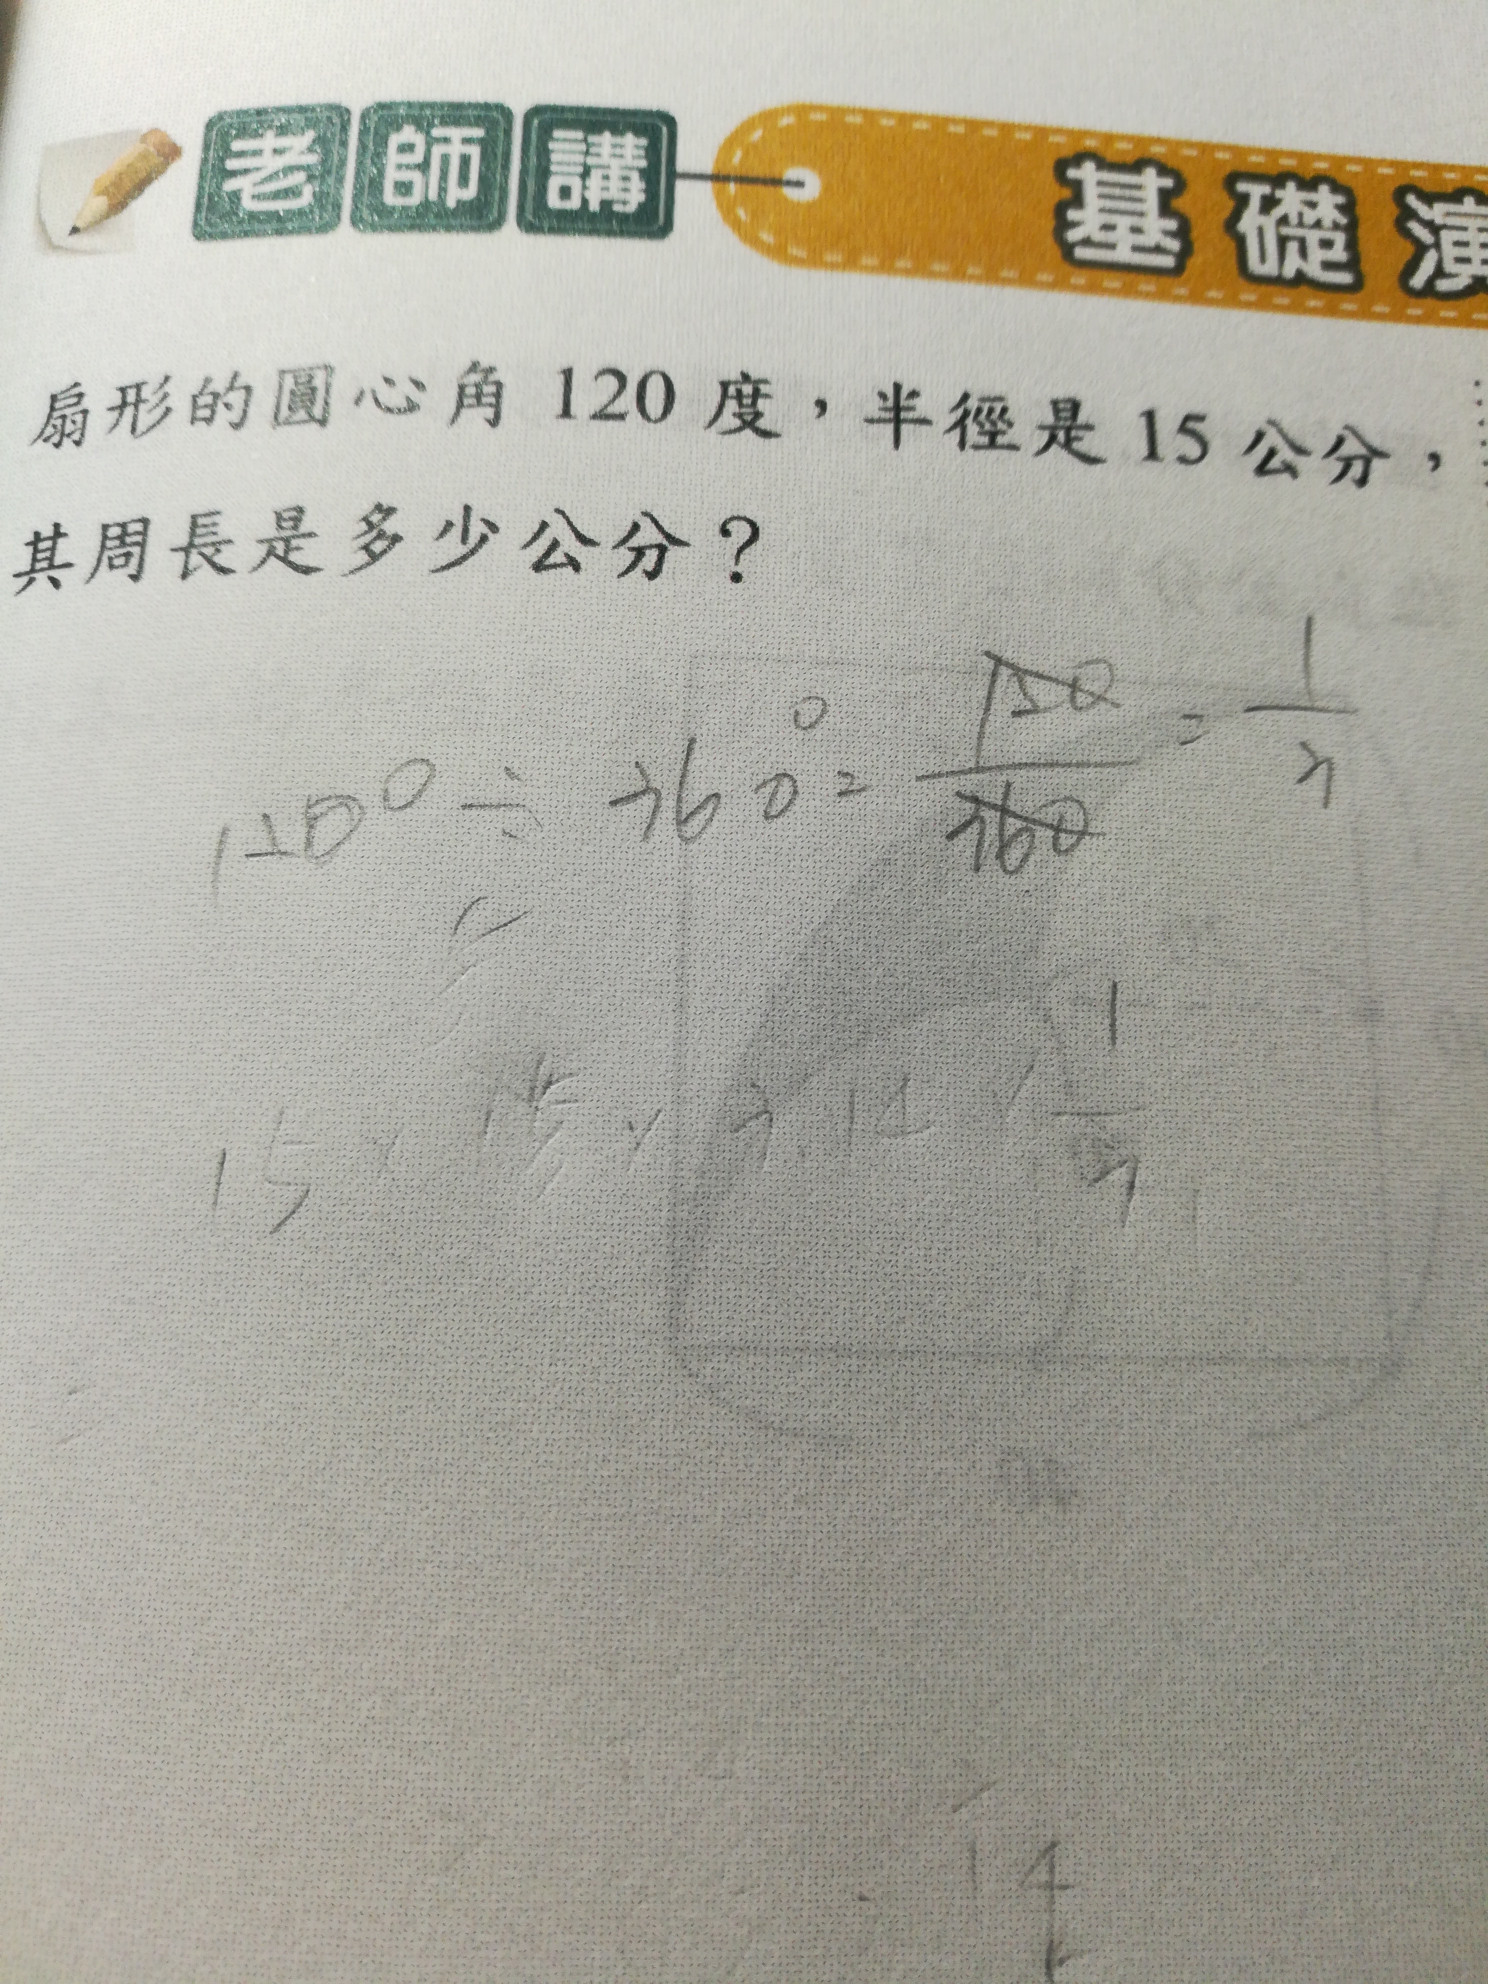 老師講 基礎演
扇形的圓心角 120 度，半徑是 15 公分，
其周長是多少公分？
120° ÷ 360° = 120/360 = 1/3
15 × 15 × 3.14 × 1/3
14